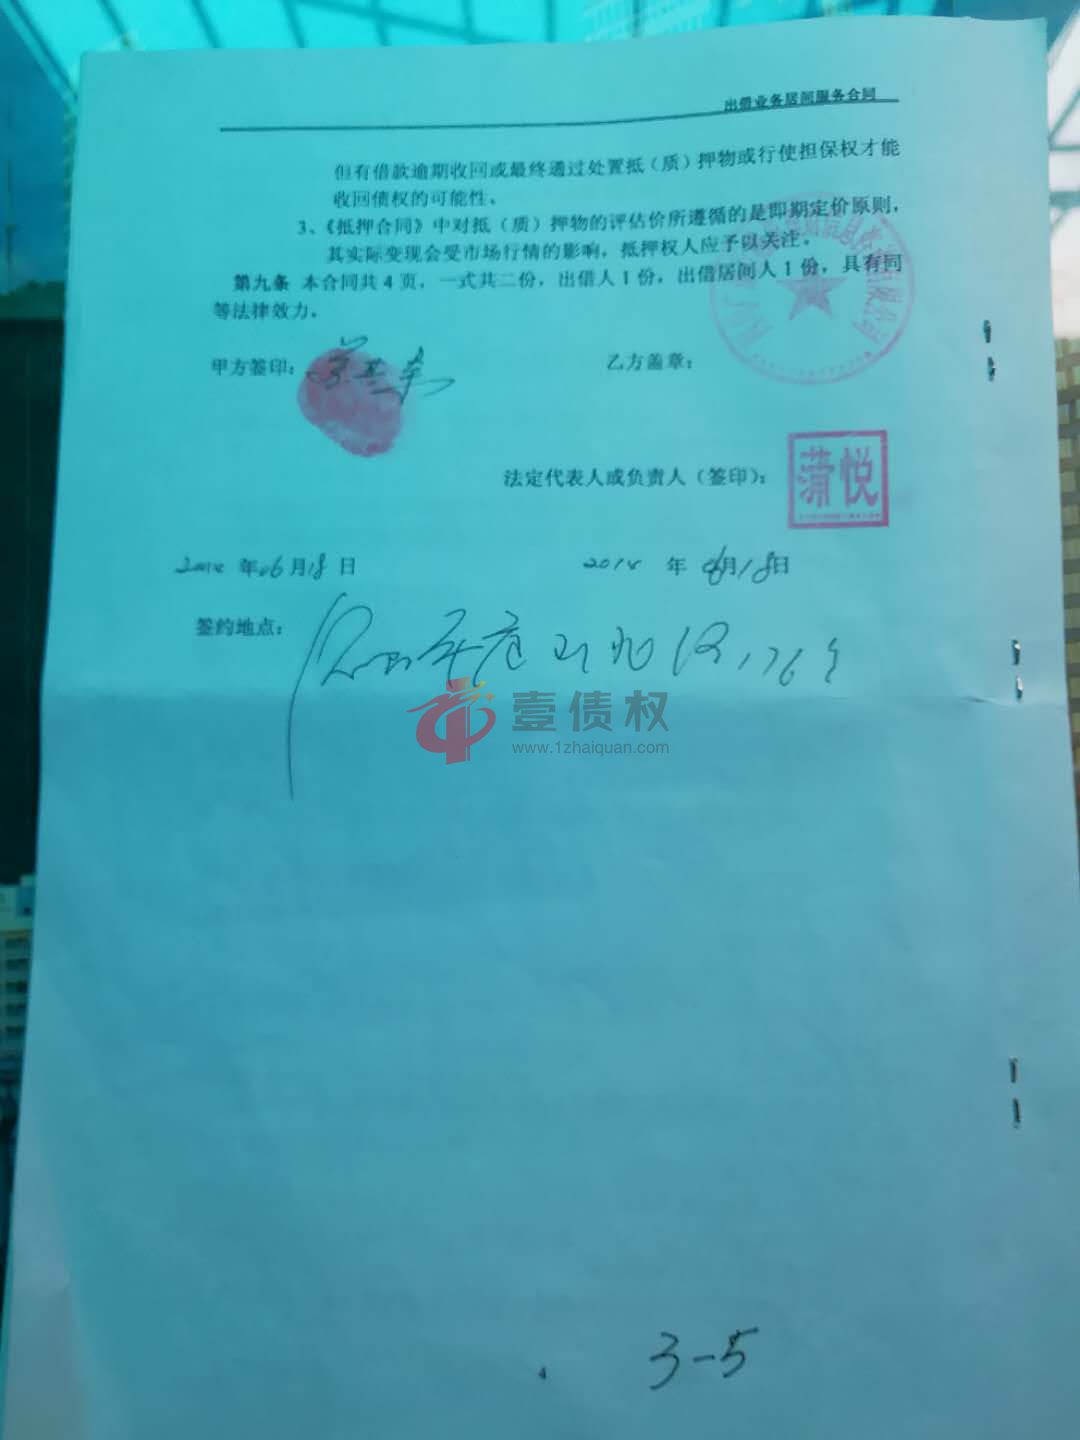 出借业务居间服务合同
但有借款逾期收回或最终通过处置抵（质）押物或行使担保权才能
收回债权的可能性。
3、《抵押合同》中对抵（质）押物的评估价所遵循的是即期定价原则，
其实际变现会受市场行情的影响，抵押权人应予以关注。
第九条 本合同共4页，一式共二份，出借人1份，出借居间人1份，具有同
等法律效力。
甲方签印：
乙方盖章：
法定代表人或负责人（签印）：
悦
年06月18日
2014 年 6月18日
签约地点：
壹债权
www.1zhaiquan.com
3-5
4